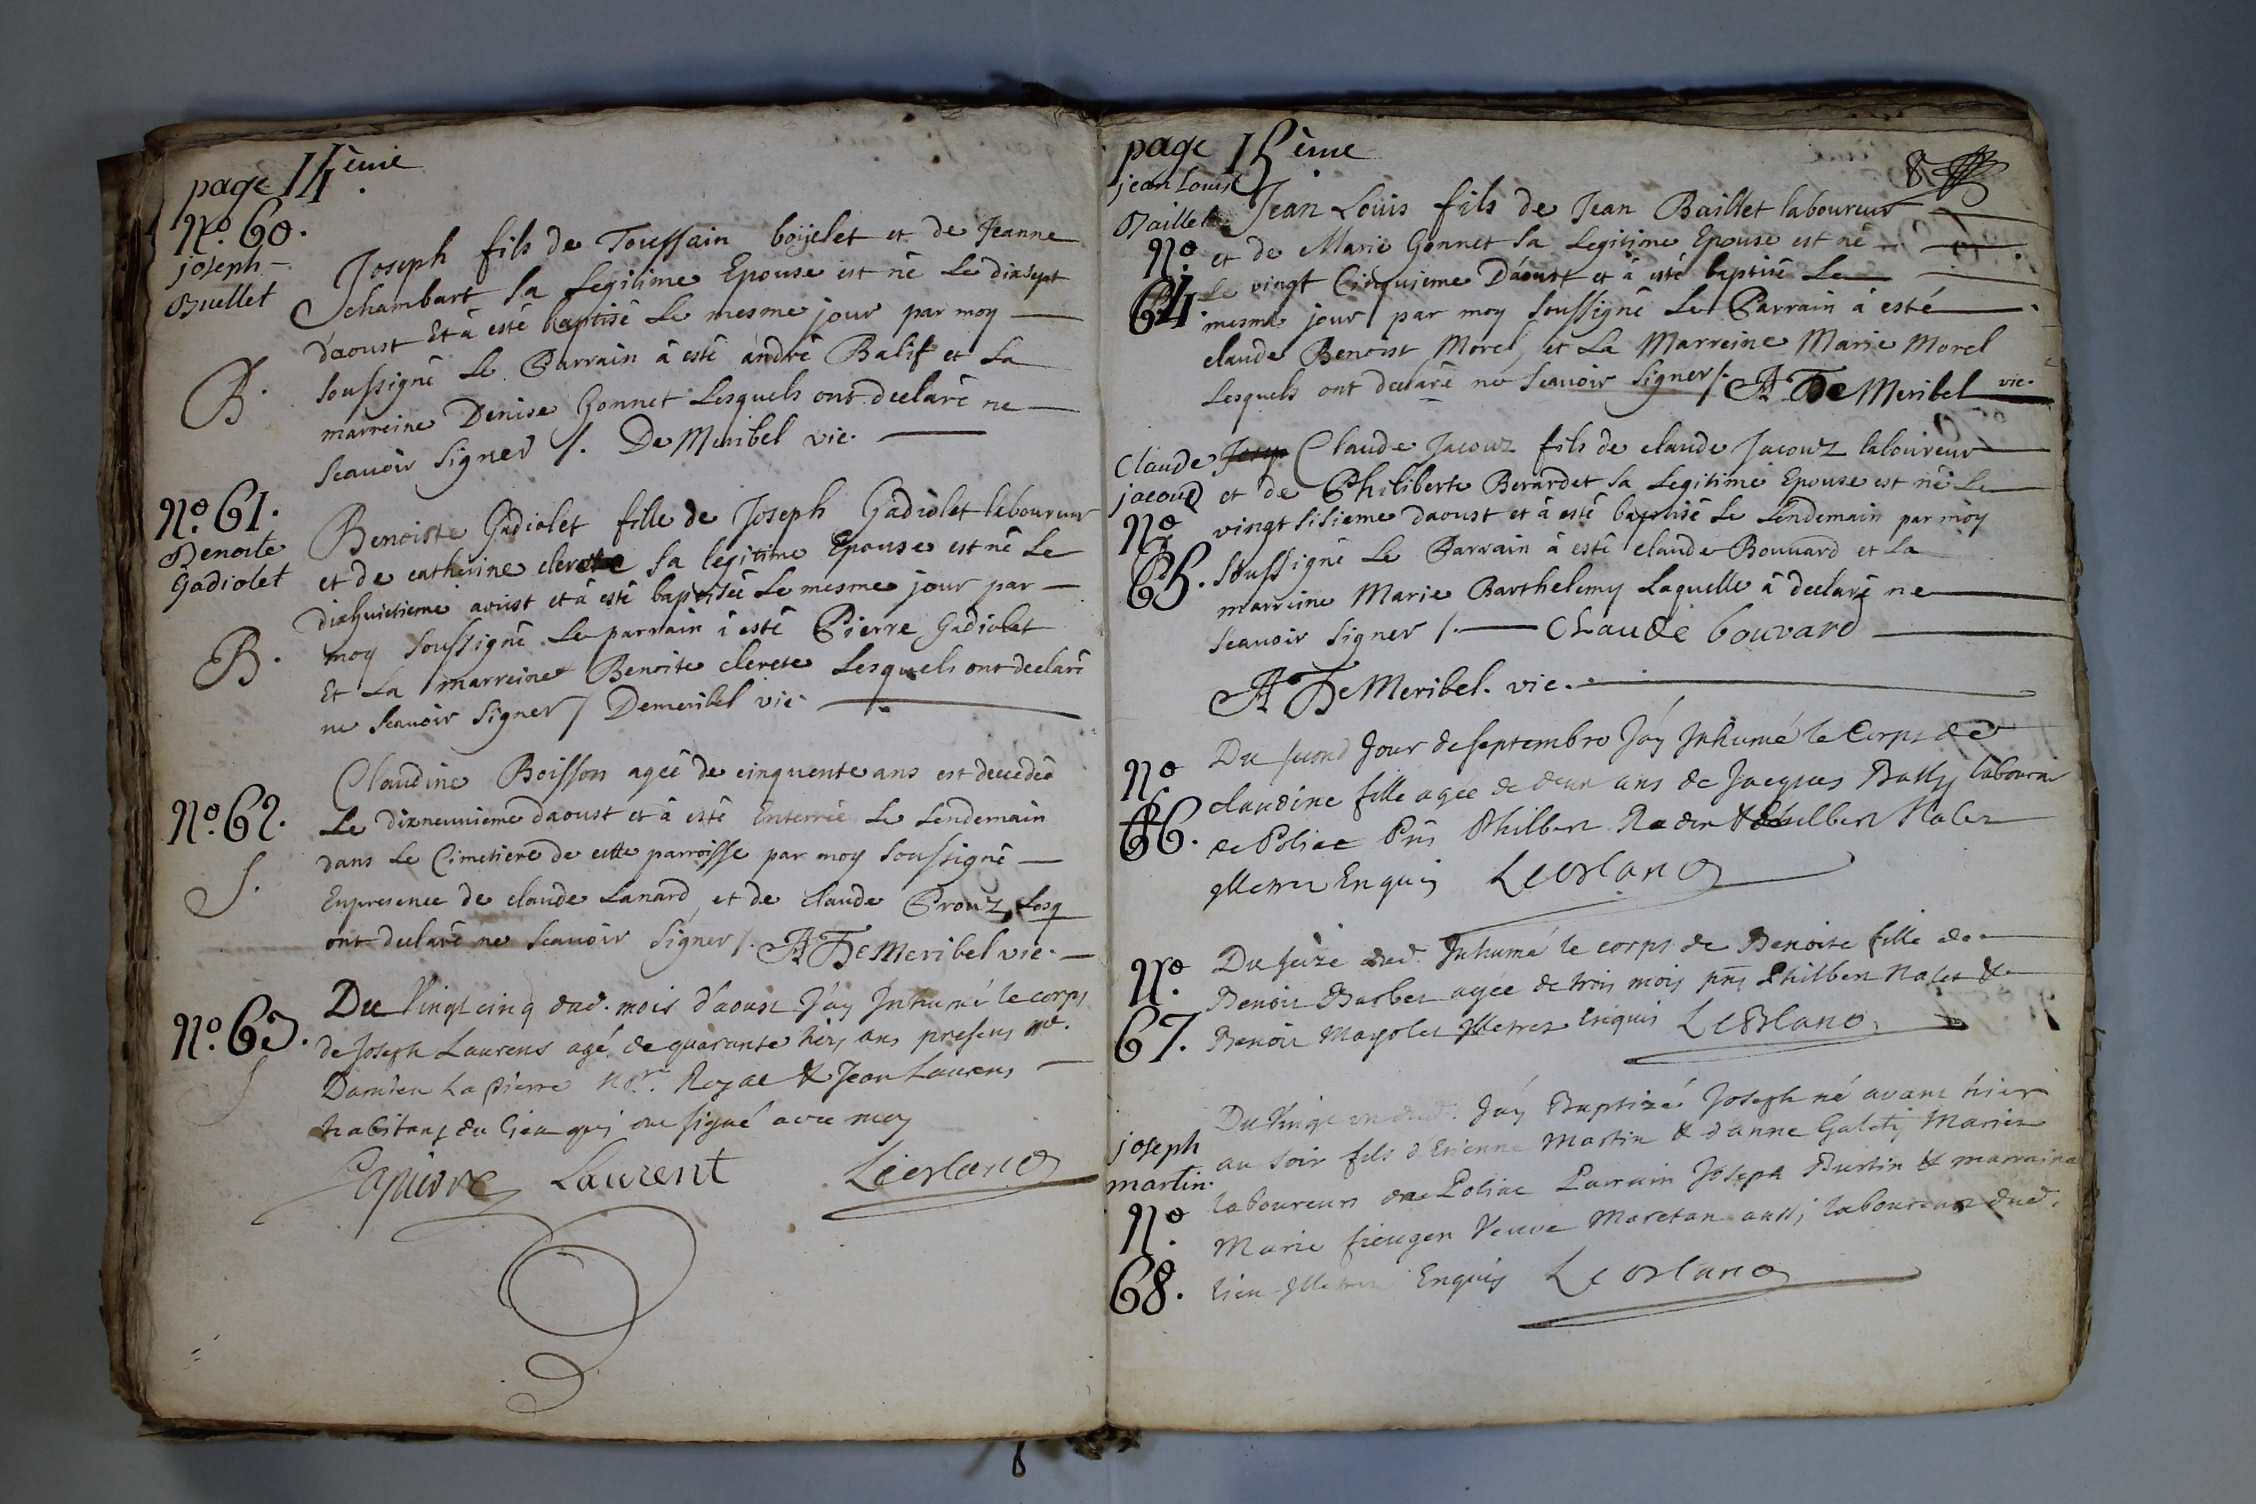 page 14ème
N.o 60.
joseph
Buellet
Joseph fils de Toussain boijelet et de Jeanne
chambart sa Legitime Epouse est né le dixsept
d'aoust Et à esté baptisé Le mesme jour par moy
soussigné Le Parrain à esté andré Balif et La
marreine Denise Gonnet Lesquels ont declaré ne
scavoir signer /. De Meribel vic.
B.
N.o 61.
Benoite
Gadiolet
Benoiste Gadiolet fille de Joseph Gadiolet laboureur
et de catherine clerete sa legitime Epouse est né Le
dixhuictieme aoust et à esté baptisée Le mesme jour par
moy soussigné Le parrain à esté Pierre Gadiolet
Et La marreine Benoite clerete Lesquels ont declaré
ne scavoir signer / Demeribel vic
B.
N.o 62.
S.
Claudine Boisson agée de cinquente ans est decedée
Le dixneuvieme daoust et à esté Enterrée Le Lendemain
dans Le Cimetiere de cette parroisse par moy soussigné
Enpresence de claude Lanard et de claude Prouz Lesq
ont declaré ne scavoir signer /. A De Meribel vic.
N.o 63.
S
Du Vingt cinq dud. mois d'aoust J'ay Inhumé le corps
de Joseph Laurens agé de quarante ans presens me.
Damien La pierre No.re Royal & Jean Laurens
habitans du lieu qui ont signé avec moy
Lapierre Laurent LeBlanc
page 15ème
8
jean Louis
Baillet
N.o
64.
Jean Louis fils de Jean Baillet laboureur
et de Marie Gonnet sa Legitime Epouse est né
Le vingt Cinquieme D'aoust et à esté baptisé Le
mesme jour par moy soussigné Le Parrain à esté
claude Benoist Morel et La Marreine Marie Morel
Lesquels ont declaré ne scavoir signer /. A De Meribel vic.
Claude
jacouz
N.o
65.
Claude Jacouz fils de claude Jacouz laboureur
et de Philiberte Berardet sa Legitime Epouse est né Le
vingt sisieme daoust et à esté baptisé Le Lendemain par moy
soussigné Le Parrain à esté claude Bouvard et La
marreine Marie Barthelemy Laquelle à declaré ne
scavoir signer /. Claude bouvard
A De Meribel. vic.
N.o
66.
Du second Jour de septembre J'ay Inhumé le Corps de
claudine fille agée de deux ans de Jacques Bally laboureur
de Poliac Philbert & Philbert Nalet
Illetrez Enquis LeBlanc
N.o
67.
Du seize dud. Inhumé le corps de Benoite fille de
Benoit Barbet agée de trois mois Philbert Nalet &
Benoit Mayolet Illetrez Enquis LeBlanc
joseph
martin.
N.o
68.
Du Vingt un dud. J'ay Baptizé Joseph né avant hier
au soir fils d'Etienne Martin & d'anne Galety Mariez
laboureurs de Poliac Parrain Joseph Burtin & marraine
Marie Veuve Maretan aussi laboureur dud.
lieu Illetrez Enquis LeBlanc